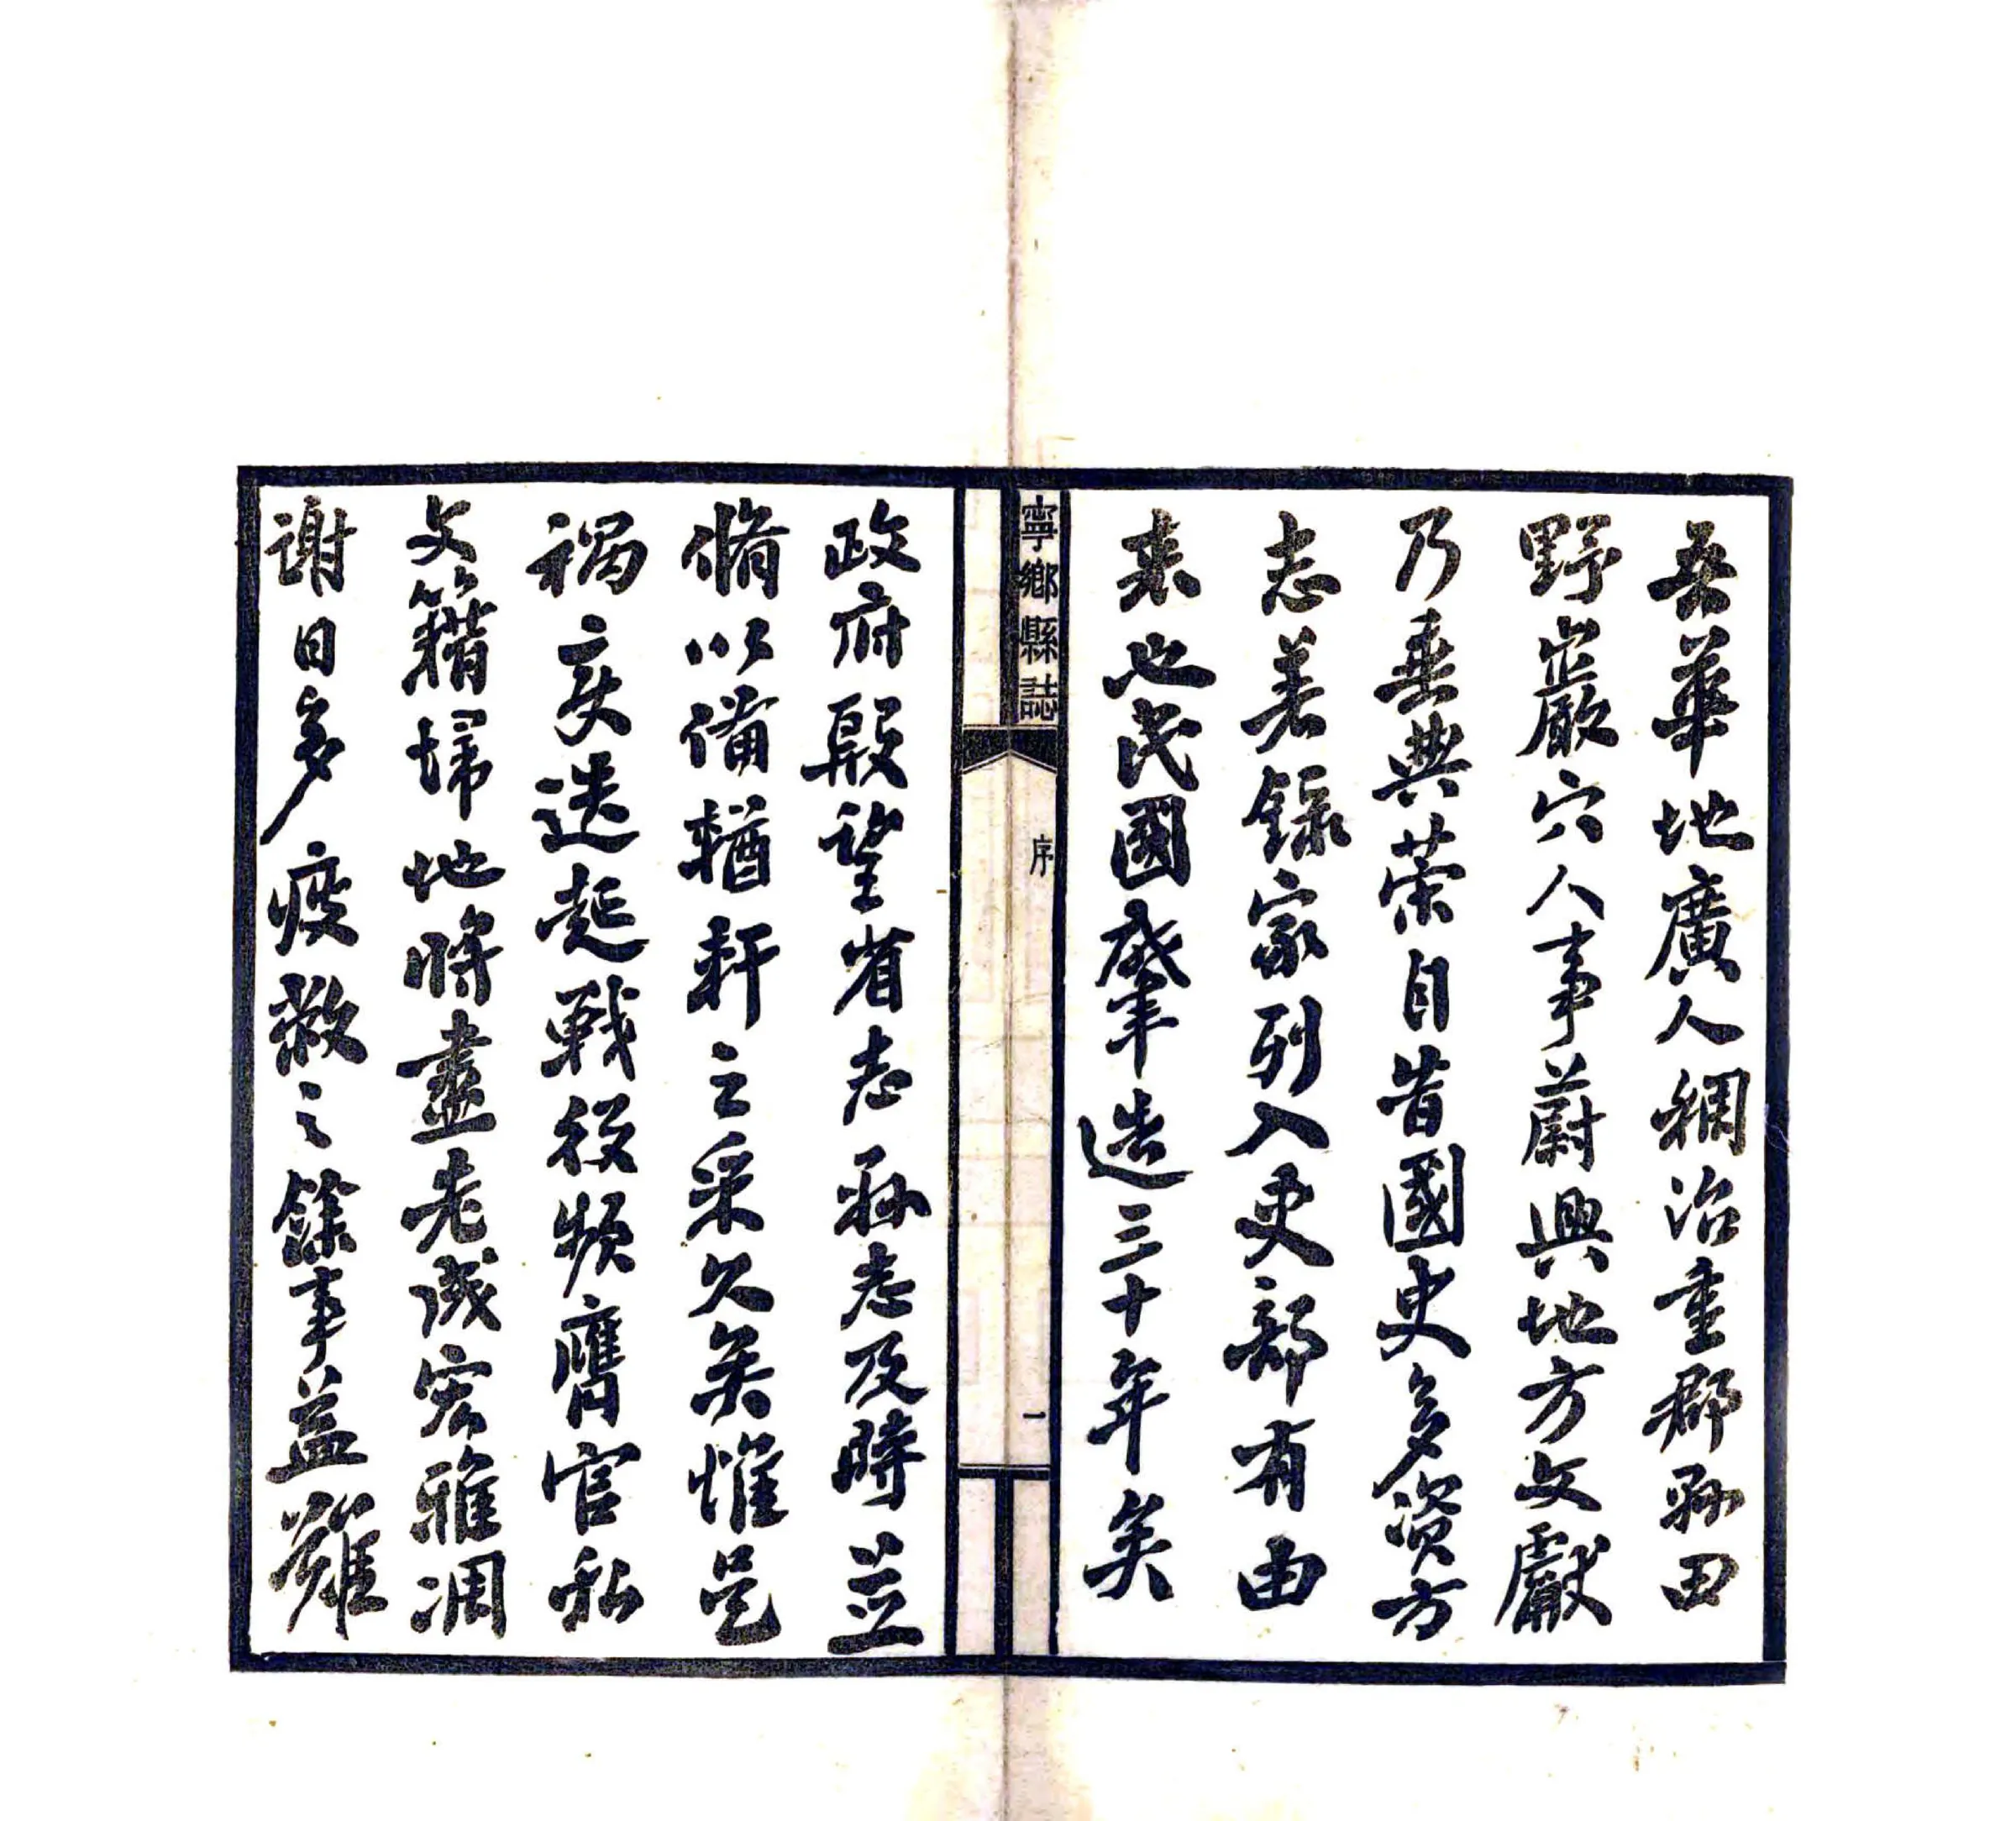 吾華地廣人稠治重郡縣田
野巖穴人事蔚興地方文獻
乃垂典荣自昔國史多資方
志著錄家列入史部有由
来也民國肇造三十年矣
寧鄉縣誌
序
一
政府殷望省志縣志及時並
脩以備輶軒之采久矣惟邑
禍变迭起戰役頻膺官私
文籍埽地將盡老成宏雅凋
謝日多疲敝之餘事益難